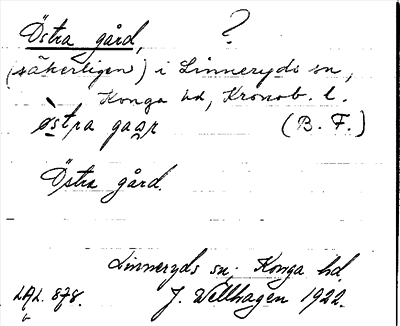 Östra gård, ?
(säkerligen) i Linneryds sn,
Konga hd, Kronob. l.
östra gaar (B. F.)
Östra gård.
Linneryds sn; Konga hd.
LAL. 878. J. Wellhagen 1922.